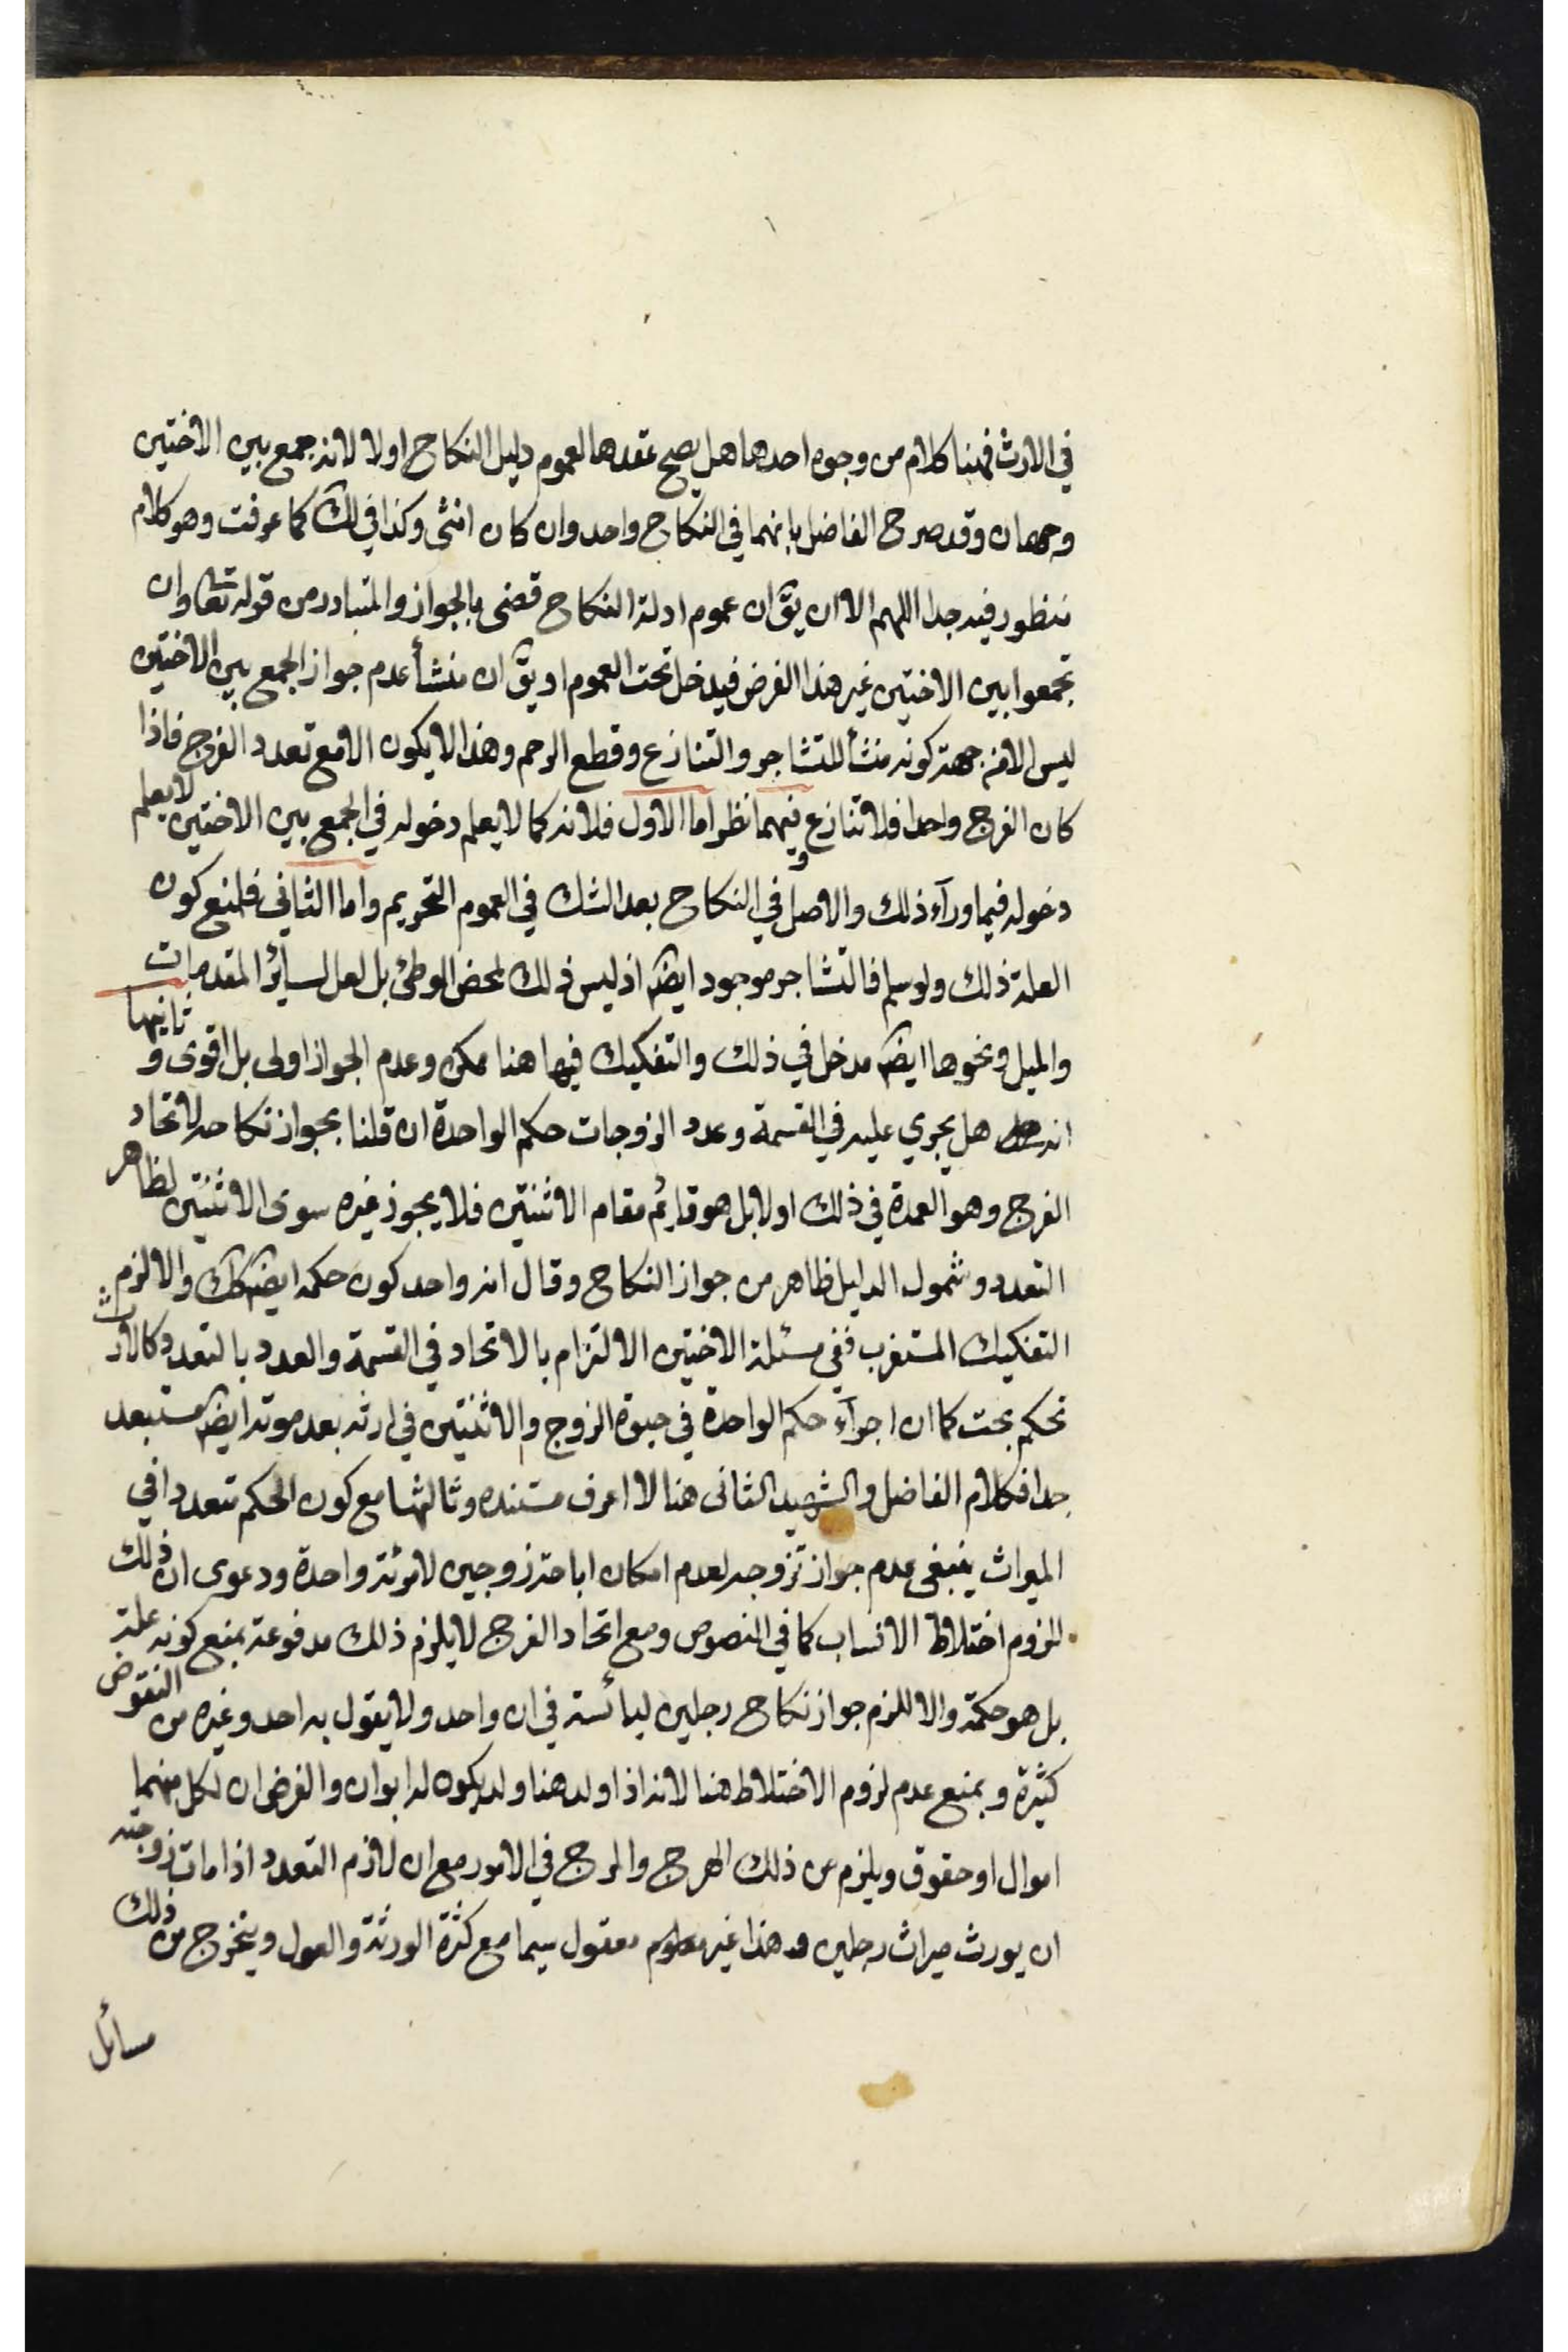 في الارث فهنا كلام من وجوه احدها هل يصح عقدها لعموم دليل النكاح اولا لانه جمع بين الاختين
وجهان وقد صرح الفاضل بانهما في النكاح واحد وان كان انثى وكذا في لك كما عرفت وهو كلام
منظور فيه جدا اللهم الا ان يق ان عموم ادلة النكاح قضى بالجواز والمتبادر من قوله تعا وان
تجمعوا بين الاختين غير هذا الفرض فيدخل تحت العموم او يق ان منشأ عدم جواز الجمع بين الاختين
ليس الا من جهة كونه منشأ للتشاجر والتنازع وقطع الرحم وهذا لا يكون الا مع تعدد الفرج فاذا
كان الفرج واحدا فلا تنازع وفيهما نظر اما الاول فلانه كما لا يعلم دخوله في الجمع بين الاختين لا يعلم
دخوله فيما ورآء ذلك والاصل في النكاح بعد الشك في العموم التحريم واما الثاني فلمنع كون
العلة ذلك ولو سلم فالتشاجر موجود ايضا اذ ليس ذلك لمحض الوطئ بل لعل لسائر المقدمات
والميل ونحوها ايضا مدخل في ذلك والتفكيك فيها هنا ممكن وعدم الجواز اولى بل اقوى و ثانيها
انه هل يجري عليه في القسمة وعدد الزوجات حكم الواحدة ان قلنا بجواز نكاحه لاتحاد
الفرج وهو العمدة في ذلك اولا بل هو قايم مقام الاثنتين فلا يجوز غيره سوى الاثنتين لظاهر
التعدد وشمول الدليل ظاهر من جواز النكاح وقال انه واحد كون حكمه ايضا كك والا لزم
التفكيك المستغرب ففي مسئلة الاختين الالتزام بالاتحاد في القسمة والعدد بالتعدد كالارث
تحكم بحت كما ان اجرآء حكم الواحدة في حيوة الزوج والاثنتين في ارثه بعد موته ايضا مستبعد
جدا فكلام الفاضل والشهيد الثانى هنا لا اعرف مستنده وثالثها مع كون الحكم متعددا في
الميراث ينبغى عدم جواز تزوجه لعدم امكان اباحة زوجين لامرئة واحدة ودعوى ان ذلك
للزوم اختلاط الانساب كما في النصوص ومع اتحاد الفرج لا يلزم ذلك مدفوعة بمنع كونه علة
بل هو حكمة والا للزم جواز نكاح رجلين ليائسة في ان واحد ولا يقول به احد وغيره من النقوض
كثيرة وبمنع عدم لزوم الاختلاط هنا لانه اذا ولد هنا ولد يكون له ابوان والفرض ان لكل منهما
اموال او حقوق ويلزم من ذلك الهرج والمرج في الامور مع ان لازم التعدد اذا مات زوجته
ان يورث ميراث رجلين وهذا غير معقول سيما مع كثرة الورثة والعول ويتخرج من ذلك
مسائل